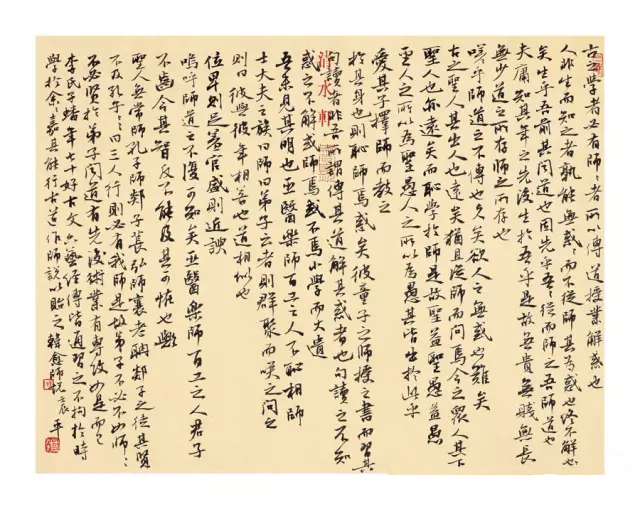 古之学者必有師々者所以傳道授業解惑也
人非生而知之者孰能無惑々而不從師其為惑也終不解也
矣生乎吾前其聞道也固先乎吾々從而師之吾師道也
夫庸知其年之先後生於吾乎是故無貴無賤無長
無少道之所存師之所存也
嗟乎師道之不傳也久矣欲人之無惑也難矣
古之聖人其出人也遠矣猶且從師而問焉今之眾人其下
聖人也亦遠矣而恥學於師是故聖益聖愚益愚
聖人之所以為聖愚人之所以為愚其皆出於此乎
愛其子擇師而教之
於其身也則恥師焉惑矣彼童子之師授之書而習其
句讀者非吾所謂傳其道解其惑者也句讀之不知
惑之不解或師焉或不焉小學而大遺
吾未見其明也巫醫樂師百工之人不恥相師
士大夫之族曰師曰弟子云者則群聚而笑之問之
則曰彼與彼年相若也道相似也
位卑則足羞官盛則近諛
嗚呼師道之不復可知矣巫醫樂師百工之人君子
不齒今其智反不能及其可怪也歟
聖人無常師孔子師郯子萇弘師襄老聃郯子之徒其賢
不及孔子々曰三人行則必有我師是故弟子不必不如師々
不必賢於弟子聞道有先後術業有專攻如是而已
李氏子蟠年七十好古文六藝經傳皆通習之不拘於時
學於余々嘉其能行古道作師說以貽之韓愈師說壬辰平